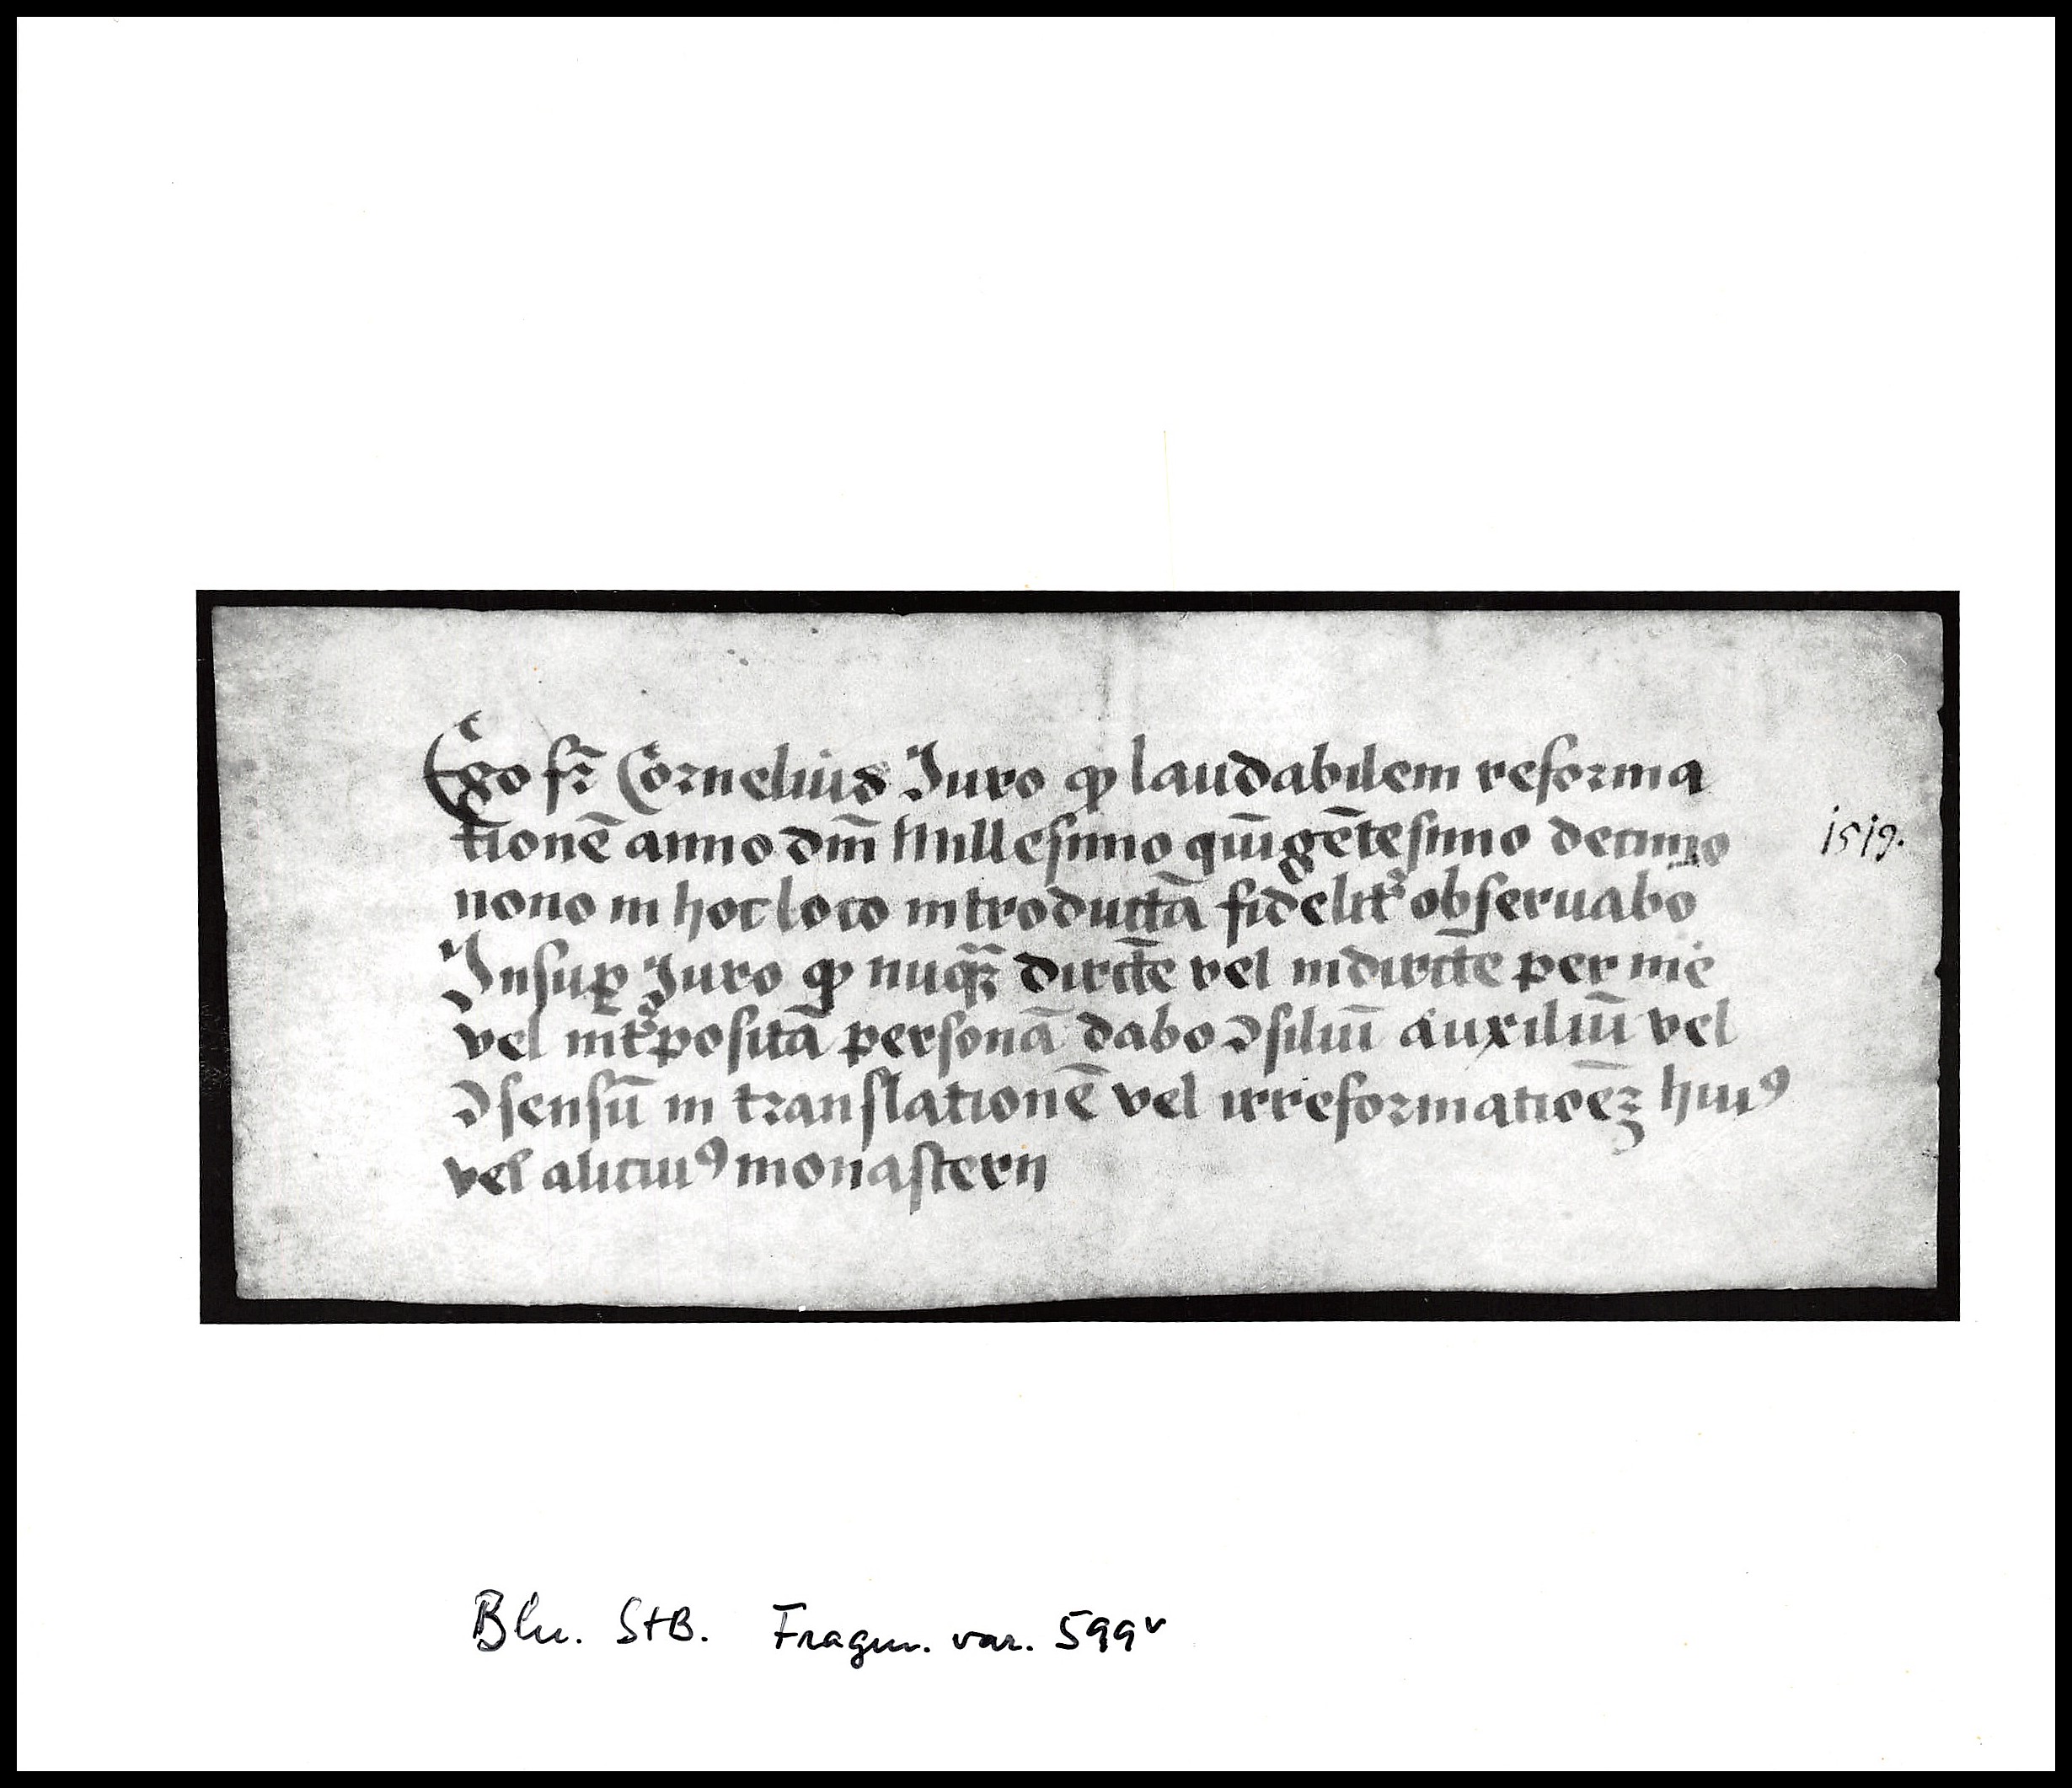 Ego fr̄ Cornelius Iuro ꝙ laudabilem reforma
tionē anno dm̄ Millesimo quīgētesimo decimo
1519.
nono in hoc loco introductā fidelit᷑ obseruabo
Insuꝑ Iuro ꝙ nuqᷓꝫ dircte̅ vel indircte̅ per me
vel int᷑positā personā dabo ꝯsiliū auxiliū vel
ꝯsensū in translationē vel irreformatioēꝫ huiꝰ
vel alicuiꝰ monasterii
Bln. StB. Fragm. var. 599v